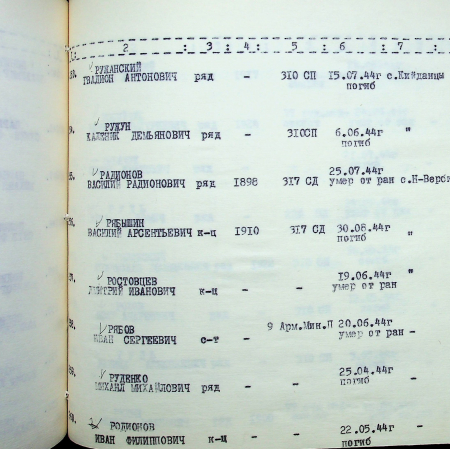 2 : 3 : 4 : 5 : 6 : 7 :
РУЖАНСКИЙ
ГВАДИОН АНТОНОВИЧ ряд - 310 СП 15.07.44г с.Кийданцы
погиб
РУЖУН
КАЛЕНИК ДЕМЬЯНОВИЧ ряд - 310СП 6.06.44г "
погиб
РАДИОНОВ 25.07.44г
ВАСИЛИЙ РАДИОНОВИЧ ряд 1898 317 СД умер от ран с.Н-Верби
РЯБЫШИН
ВАСИЛИЙ АРСЕНТЬЕВИЧ к-ц 1910 317 СД 30.08.44г "
погиб
РОСТОВЦЕВ 19.06.44г "
ДМИТРИЙ ИВАНОВИЧ к-ц - - умер от ран
РЯБОВ 9 Арм.Мин.П 20.06.44г
ИВАН СЕРГЕЕВИЧ с-т - умер от ран -
РУДЕНКО 25.04.44г
МИХАИЛ МИХАЙЛОВИЧ ряд - - погиб -
РОДИОНОВ 22.05.44г
ИВАН ФИЛИППОВИЧ к-ц - - погиб -